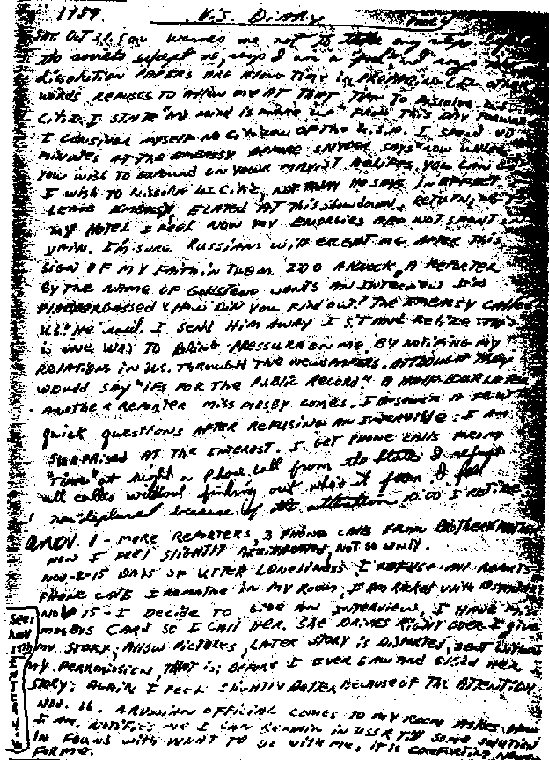 1959. H.S. Diary
Sat Oct 31. warns me not to take any steps before
the soviets except me, says I am a "fool", and says the
disolution papers are along time in preparing
words refuses to allow me at that time to disolve my U.S.
citiz. I state "my mind is make up" from this day forward
I consider myself no citizen of the U.S.A. I spend 40
minutes at the Embassy before Snyder says "now unless
you wish to expound on your maxist belifes you can go."
I wish to disolve U.S. citiz. not today he says in effect
leave Embassy, elated at this showdown, returning to
my hotel I feel now my enorgies are not spent
in vain. I'm sure Russians will except me after this
sign of my faith in them. 2:00 a knock, a reporter
by the name of Goldstene wants an interview I'm
flabbergassed "how did you find out? The Embassy called
us." He said. I send him away I sit and relize this
is one way to bring pressure on me. By notifing my
relations in U.S. through the newspapers. Although they
would say "its for the public record." A half hour later
another reporter miss Mosby comes. I answer a few
quick questions after refusing an interviwe. I am
surprised at the interest. I get phone calls from
"Time" at night a phone call from the States I refuse
all calles without finding out who's it from. I feel
non-deplused because of the attention 10:00 I retire
Nov. 1 - more reporters, 3 phone calls from brother + mother
now I feel slightly axzillarated, not so lonly.
Nov-2-15 days of utter loneliness I refuse all reports
phone calls I remaine in my room, I am racked with dsyentary
Nov 15 - I decide to give an interview, I have Miss
Mosbys card so I call her. She drives right over. I give
my story, allow pictures, later story is distorted, sent without
my permission, that is: before I ever saw and O.K'ed her
story. Again I feel slightly better because of the attention
Nov. 16. A Russian official comes to my room askes how
I am. Notifies me I can remain in USSR till some solution
is found with what to do with me, it is comforting news
for me.